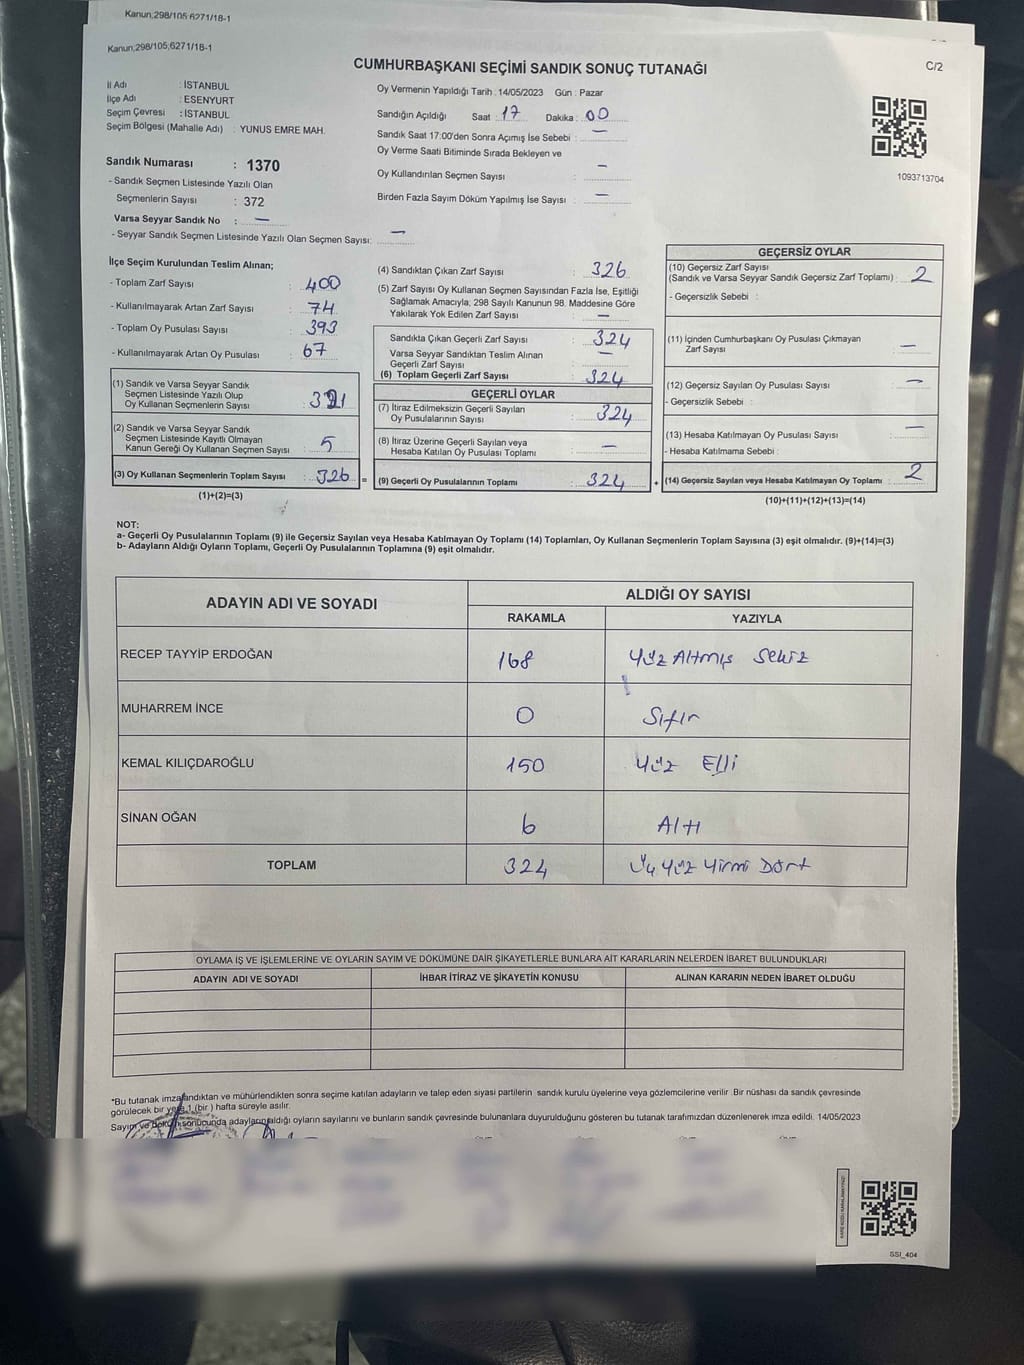 Kanun;298/105;6271/18-1
Kanun;298/105;6271/18-1
C/2
CUMHURBAŞKANI SEÇİMİ SANDIK SONUÇ TUTANAĞI
İl Adı : İSTANBUL
İlçe Adı : ESENYURT
Seçim Çevresi : İSTANBUL
Seçim Bölgesi (Mahalle Adı) : YUNUS EMRE MAH.
Sandık Numarası : 1370
- Sandık Seçmen Listesinde Yazılı Olan
Seçmenlerin Sayısı : 372
Varsa Seyyar Sandık No : —
- Seyyar Sandık Seçmen Listesinde Yazılı Olan Seçmen Sayısı: —
Oy Vermenin Yapıldığı Tarih :14/05/2023 Gün : Pazar
Sandığın Açıldığı Saat : 17 Dakika : 00
Sandık Saat 17:00'den Sonra Açımış İse Sebebi : —
Oy Verme Saati Bitiminde Sırada Bekleyen ve
Oy Kullandırılan Seçmen Sayısı : —
Birden Fazla Sayım Döküm Yapılmış İse Sayısı : —
1093713704
İlçe Seçim Kurulundan Teslim Alınan;
- Toplam Zarf Sayısı : 400
- Kullanılmayarak Artan Zarf Sayısı : 74
- Toplam Oy Pusulası Sayısı : 393
- Kullanılmayarak Artan Oy Pusulası : 67
(1) Sandık ve Varsa Seyyar Sandık
Seçmen Listesinde Yazılı Olup
Oy Kullanan Seçmenlerin Sayısı : 321
(2) Sandık ve Varsa Seyyar Sandık
Seçmen Listesinde Kayıtlı Olmayan
Kanun Gereği Oy Kullanan Seçmen Sayısı : 5
(3) Oy Kullanan Seçmenlerin Toplam Sayısı : 326 =
(1)+(2)=(3)
(4) Sandıktan Çıkan Zarf Sayısı : 326
(5) Zarf Sayısı Oy Kullanan Seçmen Sayısından Fazla İse, Eşitliği
Sağlamak Amacıyla; 298 Sayılı Kanunun 98. Maddesine Göre
Yakılarak Yok Edilen Zarf Sayısı : —
Sandıkta Çıkan Geçerli Zarf Sayısı : 324
Varsa Seyyar Sandıktan Teslim Alınan
Geçerli Zarf Sayısı : —
(6) Toplam Geçerli Zarf Sayısı : 324
GEÇERLİ OYLAR
(7) İtiraz Edilmeksizin Geçerli Sayılan
Oy Pusulalarının Sayısı : 324
(8) İtiraz Üzerine Geçerli Sayılan veya
Hesaba Katılan Oy Pusulası Toplamı : —
(9) Geçerli Oy Pusulalarının Toplamı : 324 +
GEÇERSİZ OYLAR
(10) Geçersiz Zarf Sayısı
(Sandık ve Varsa Seyyar Sandık Geçersiz Zarf Toplamı) : 2
- Geçersizlik Sebebi :
(11) İçinden Cumhurbaşkanı Oy Pusulası Çıkmayan
Zarf Sayısı : —
(12) Geçersiz Sayılan Oy Pusulası Sayısı : —
- Geçersizlik Sebebi :
(13) Hesaba Katılmayan Oy Pusulası Sayısı : —
- Hesaba Katılmama Sebebi :
(14) Geçersiz Sayılan veya Hesaba Katılmayan Oy Toplamı : 2
(10)+(11)+(12)+(13)=(14)
NOT:
a- Geçerli Oy Pusulalarının Toplamı (9) ile Geçersiz Sayılan veya Hesaba Katılmayan Oy Toplamı (14) Toplamları, Oy Kullanan Seçmenlerin Toplam Sayısına (3) eşit olmalıdır. (9)+(14)=(3)
b- Adayların Aldığı Oyların Toplamı, Geçerli Oy Pusulalarının Toplamına (9) eşit olmalıdır.
ADAYIN ADI VE SOYADI
ALDIĞI OY SAYISI
RAKAMLA YAZIYLA
RECEP TAYYİP ERDOĞAN 168 Yüz Altmış Sekiz
MUHARREM İNCE 0 Sıfır
KEMAL KILIÇDAROĞLU 150 Yüz Elli
SİNAN OĞAN 6 Altı
TOPLAM 324 Üç Yüz Yirmi Dört
OYLAMA İŞ VE İŞLEMLERİNE VE OYLARIN SAYIM VE DÖKÜMÜNE DAİR ŞİKAYETLERLE BUNLARA AİT KARARLARIN NELERDEN İBARET BULUNDUKLARI
ADAYIN ADI VE SOYADI İHBAR İTİRAZ VE ŞİKAYETİN KONUSU ALINAN KARARIN NEDEN İBARET OLDUĞU
*Bu tutanak imzalandıktan ve mühürlendikten sonra seçime katılan adayların ve talep eden siyasi partilerin sandık kurulu üyelerine veya gözlemcilerine verilir. Bir nüshası da sandık çevresinde
görülecek bir yere 1 (bir ) hafta süreyle asılır.
Sayım ve döküm sonucunda adayların aldığı oyların sayılarını ve bunların sandık çevresinde bulunanlara duyurulduğunu gösteren bu tutanak tarafımızdan düzenlenerek imza edildi. 14/05/2023
SSI_404